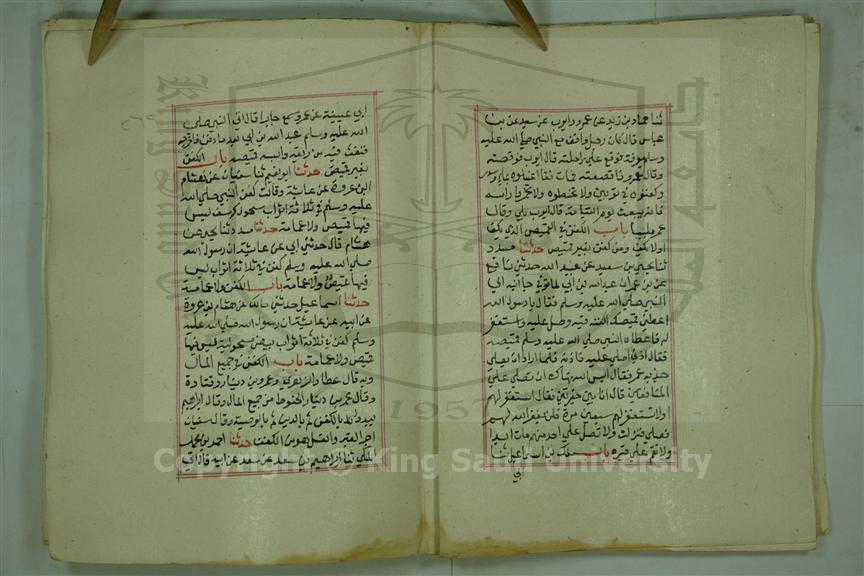 ثنا حماد بن زيد عن عمرو وايوب عن سعيد عن بن
عباس قال كان رجل واقف مع النبي صلى الله عليه
وسلم بعرفة فوقع على راحلته قال ايوب فوقصته
وقال عمرو فاقصعته فمات فقال اغسلوه بماء وسدر
وكفنوه في ثوبين ولا تحنطوه ولا تخمروا راسه
فانه يبعث يوم القيامة قال ايوب يلبي وقال
عمرو ملبيا باب الكفن في القميص الذي يكف
او لا يكف ومن كفن بغير قميص حدثنا مسدد
ثنا يحيى بن سعيد عن عبد الله حدثني نافع
عن بن عمر ان عبد الله بن ابي لما توفي جا ابنه الى
النبي صلى الله عليه وسلم فقال يا رسول الله
اعطني قميصك اكفنه فيه وصل عليه واستغفر
له فاعطاه النبي صلى الله عليه وسلم قميصه
فقال اذني اصلي عليه فاذنه فلما اراد ان يصلي
جذبه عمر فقال اليس الله نهاك ان تصلي على
المنافقين قال انا بين خيرتين فقال استغفر لهم
او لا تستغفر لهم سبعين مرة فلن يغفر الله لهم
فصلى فنزلت ولا تصل على احد منهم مات ابدا
ولا تقم على قبره ملك بن اسماعيل ثنا
ابي
ابي عيينة عن عمرو سمع جابرا قال اتى النبي صلى
الله عليه وسلم عبد الله بن ابي بعد ما دفن فاخرجه
فنفث فيه من ريقه والبسه قميصه باب الكفن
بغير قميص حدثنا ابو نعيم ثنا سفيان عن هشام
ابن عروة عن عايشة وقالت كفن النبي صلى الله
عليه وسلم في ثلاثة اثواب سحول كرسف ليس
فيها قميص ولا عمامة حدثنا مسدد ثنا يحيى عن
هشام قال حدثني ابي عن عايشة ان رسول الله
صلى الله عليه وسلم كفن في ثلاثة اثواب ليس
فيها قميص ولا عمامة باب الكفن ولا عمامة
حدثنا اسماعيل حدثني مالك عن هشام بن عروة
عن ابيه عن عايشة ان رسول الله صلى الله عليه
وسلم كفن في ثلاثة اثواب بيض سحولية ليس فيها
قميص ولا عمامة باب الكفن من جميع المال
وبه قال عطا والزهري وعمرو بن دينار وقتادة
وقال عمرو بن دينار الحنوط من جميع المال وقال ابراهيم
يبدا بالكفن ثم بالدين ثم بالوصية وقال سفيان
اجر القبر والغسل هو من الكفن حدثنا احمد بن محمد
المكي ثنا ابراهيم بن سعد عن سعد عن ابيه قال اتي
1957
Copyright © King Saud University